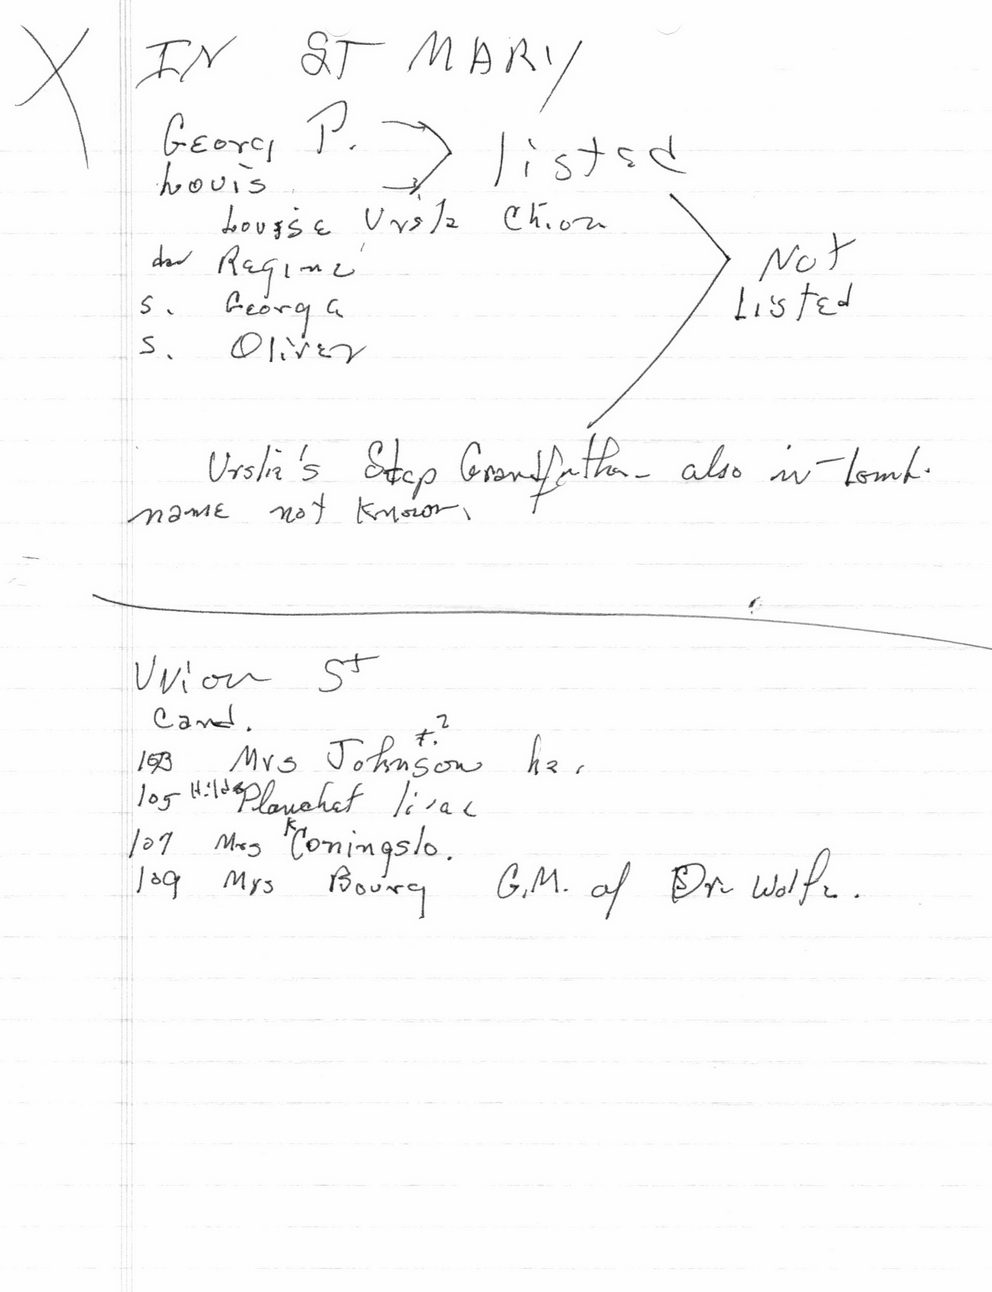 X IN ST MARY
Georg P.
Louis
listed
Louise Ursla
Regine
s. Georg
s. Oliver
Not
Listed
Ursla's Step Grandfather also in tomb.
name not known.
Union St
Card.
103 Mrs Johnson t.?
105 Hilda Planchet
107 Mrs Coningslo.
K
109 Mrs Bourg G.M. of Dr Wolfe.